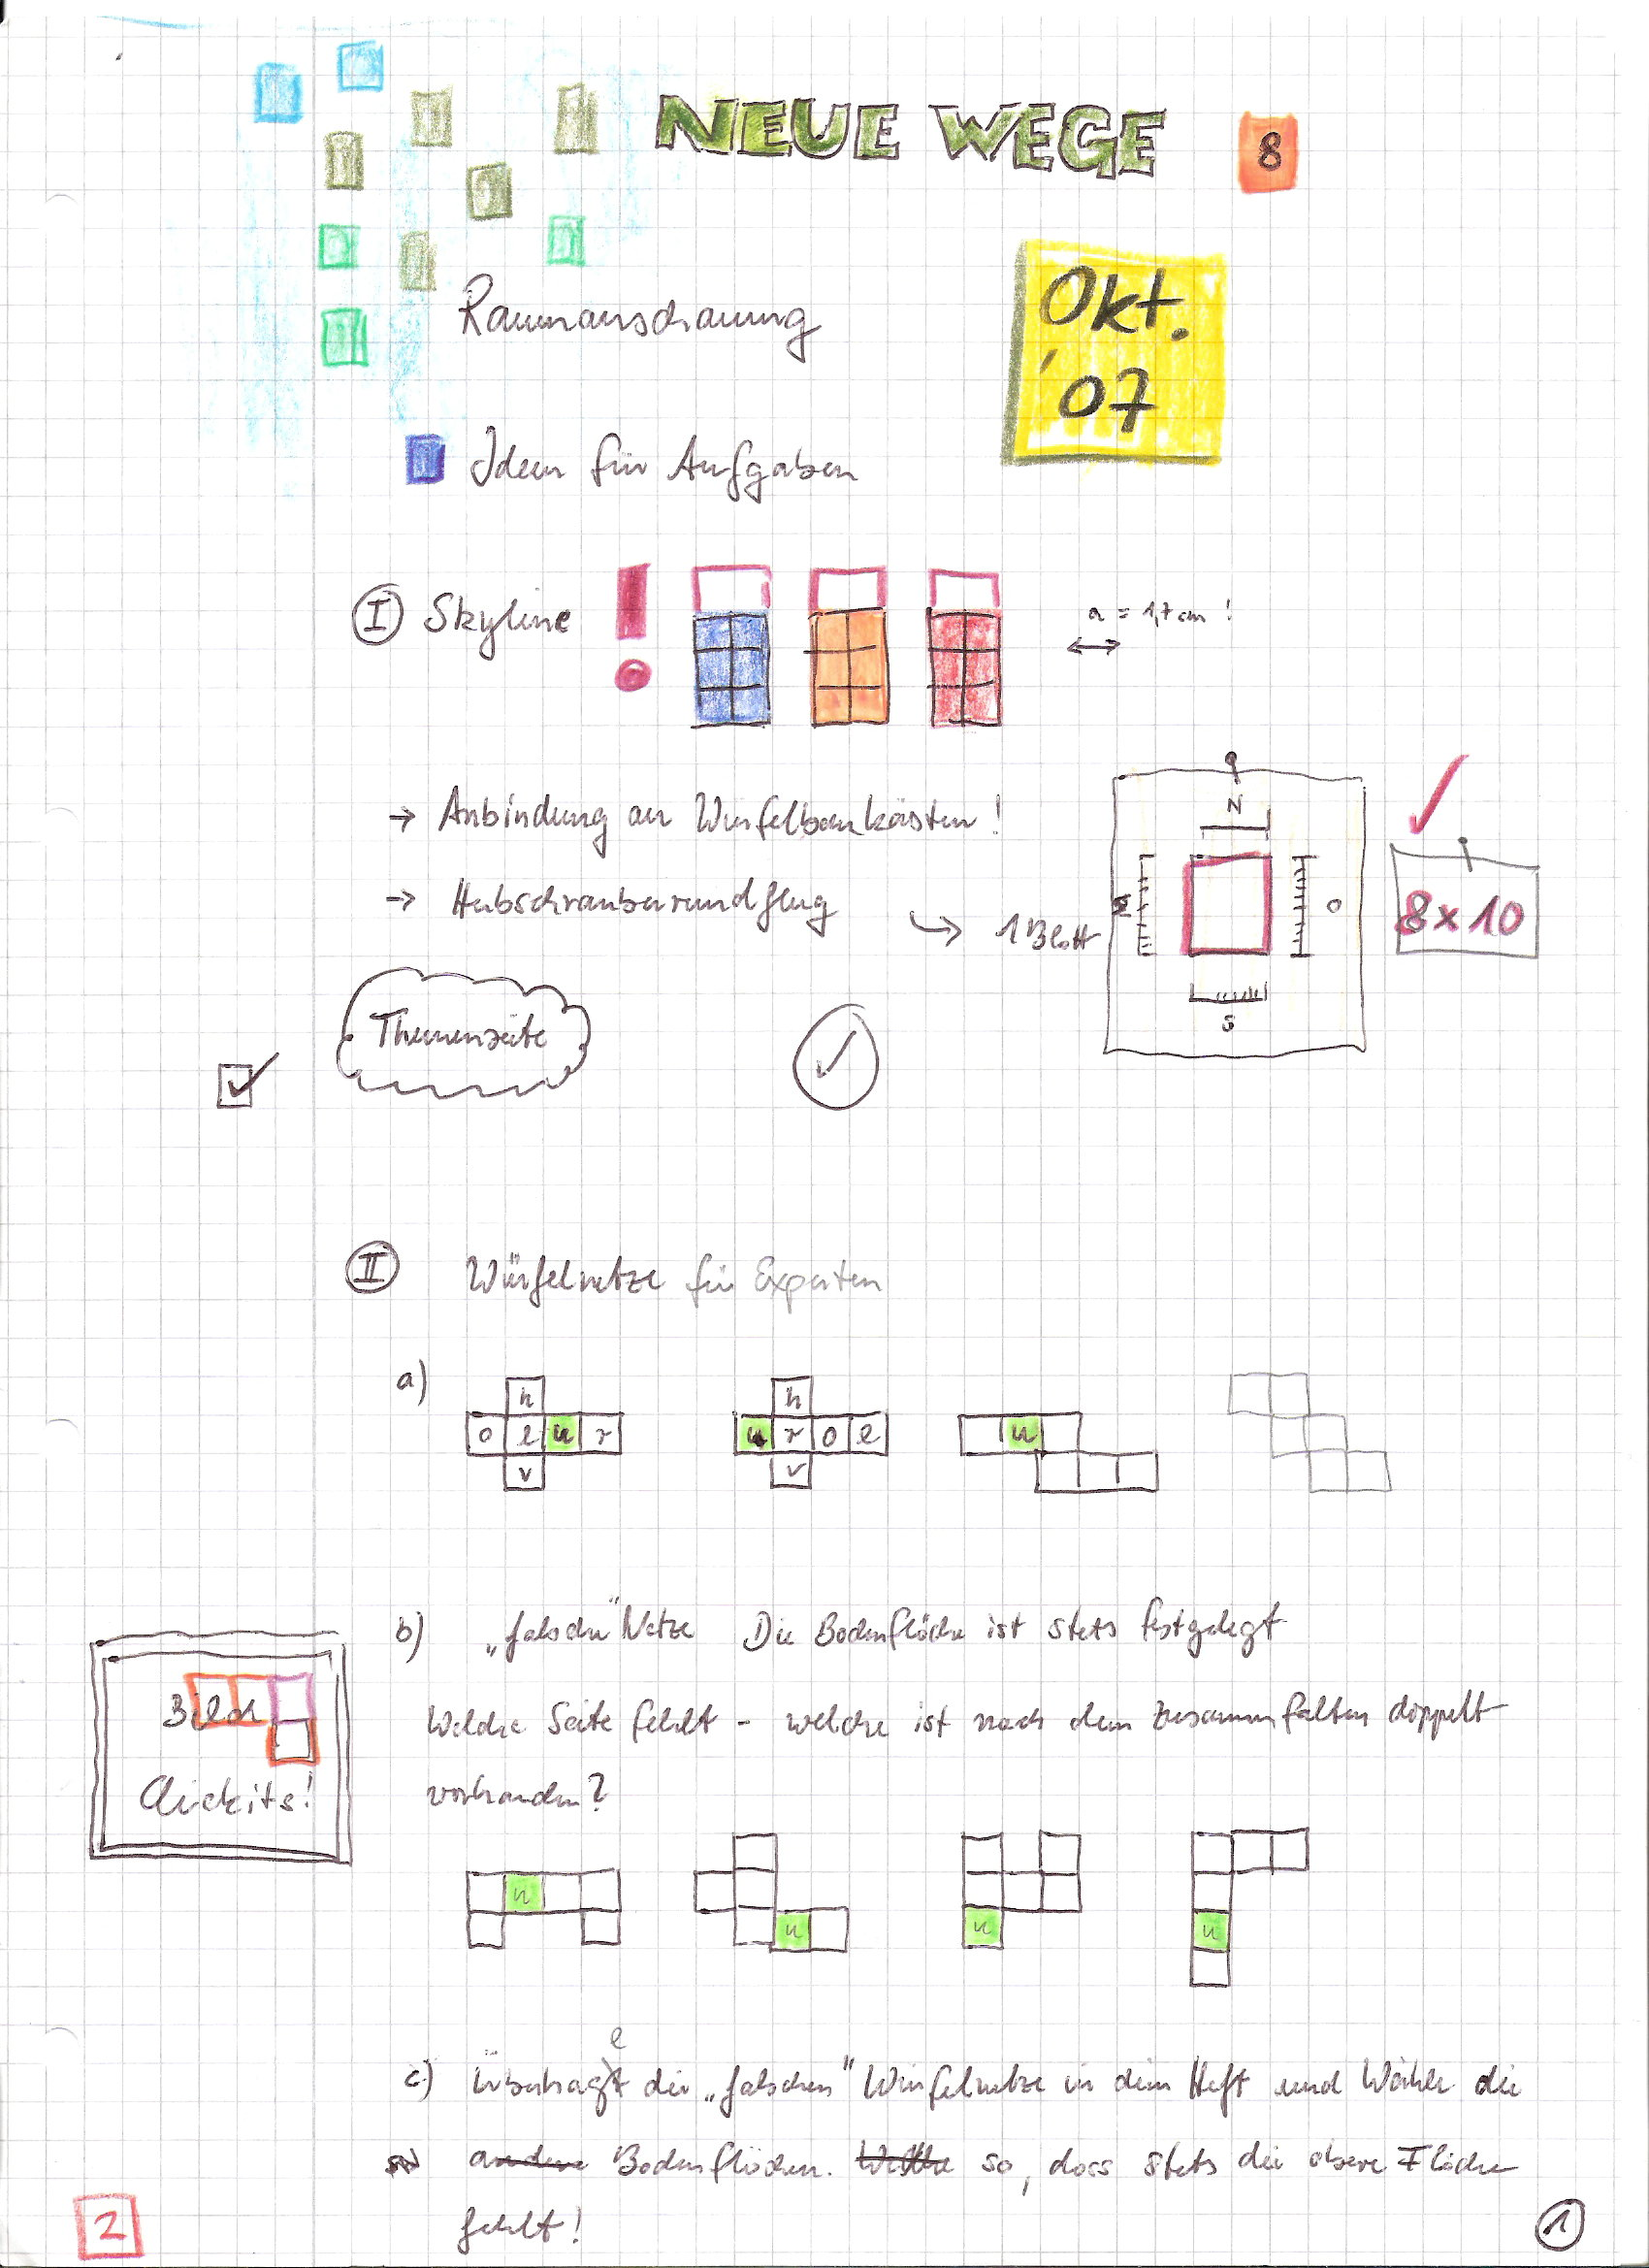 NEUE WEGE 8
Raumanschauung
Okt.
'07
Ideen für Aufgaben
I Skyline
a = 1,7 cm !
→ Anbindung an Würfelbaukästen!
→ Hubschrauberrundflug
↪ 1 Blatt
N
W
O
S
8x10
Themenseite
II Würfelnetze für Experten
a)
h
o l u r
v
h
u r o l
v
u
b) „falsche" Netze Die Bodenfläche ist stets festgelegt
Welche Seite fehlt - welche ist nach dem Zusammenfalten doppelt
vorhanden?
Bild
Clickits!
u
u
u
u
c) Übertrage die „falschen" Würfelnetze in dein Heft und Wähle die
andere Bodenflächen. so, dass stets die obere Fläche
fehlt!
2
1